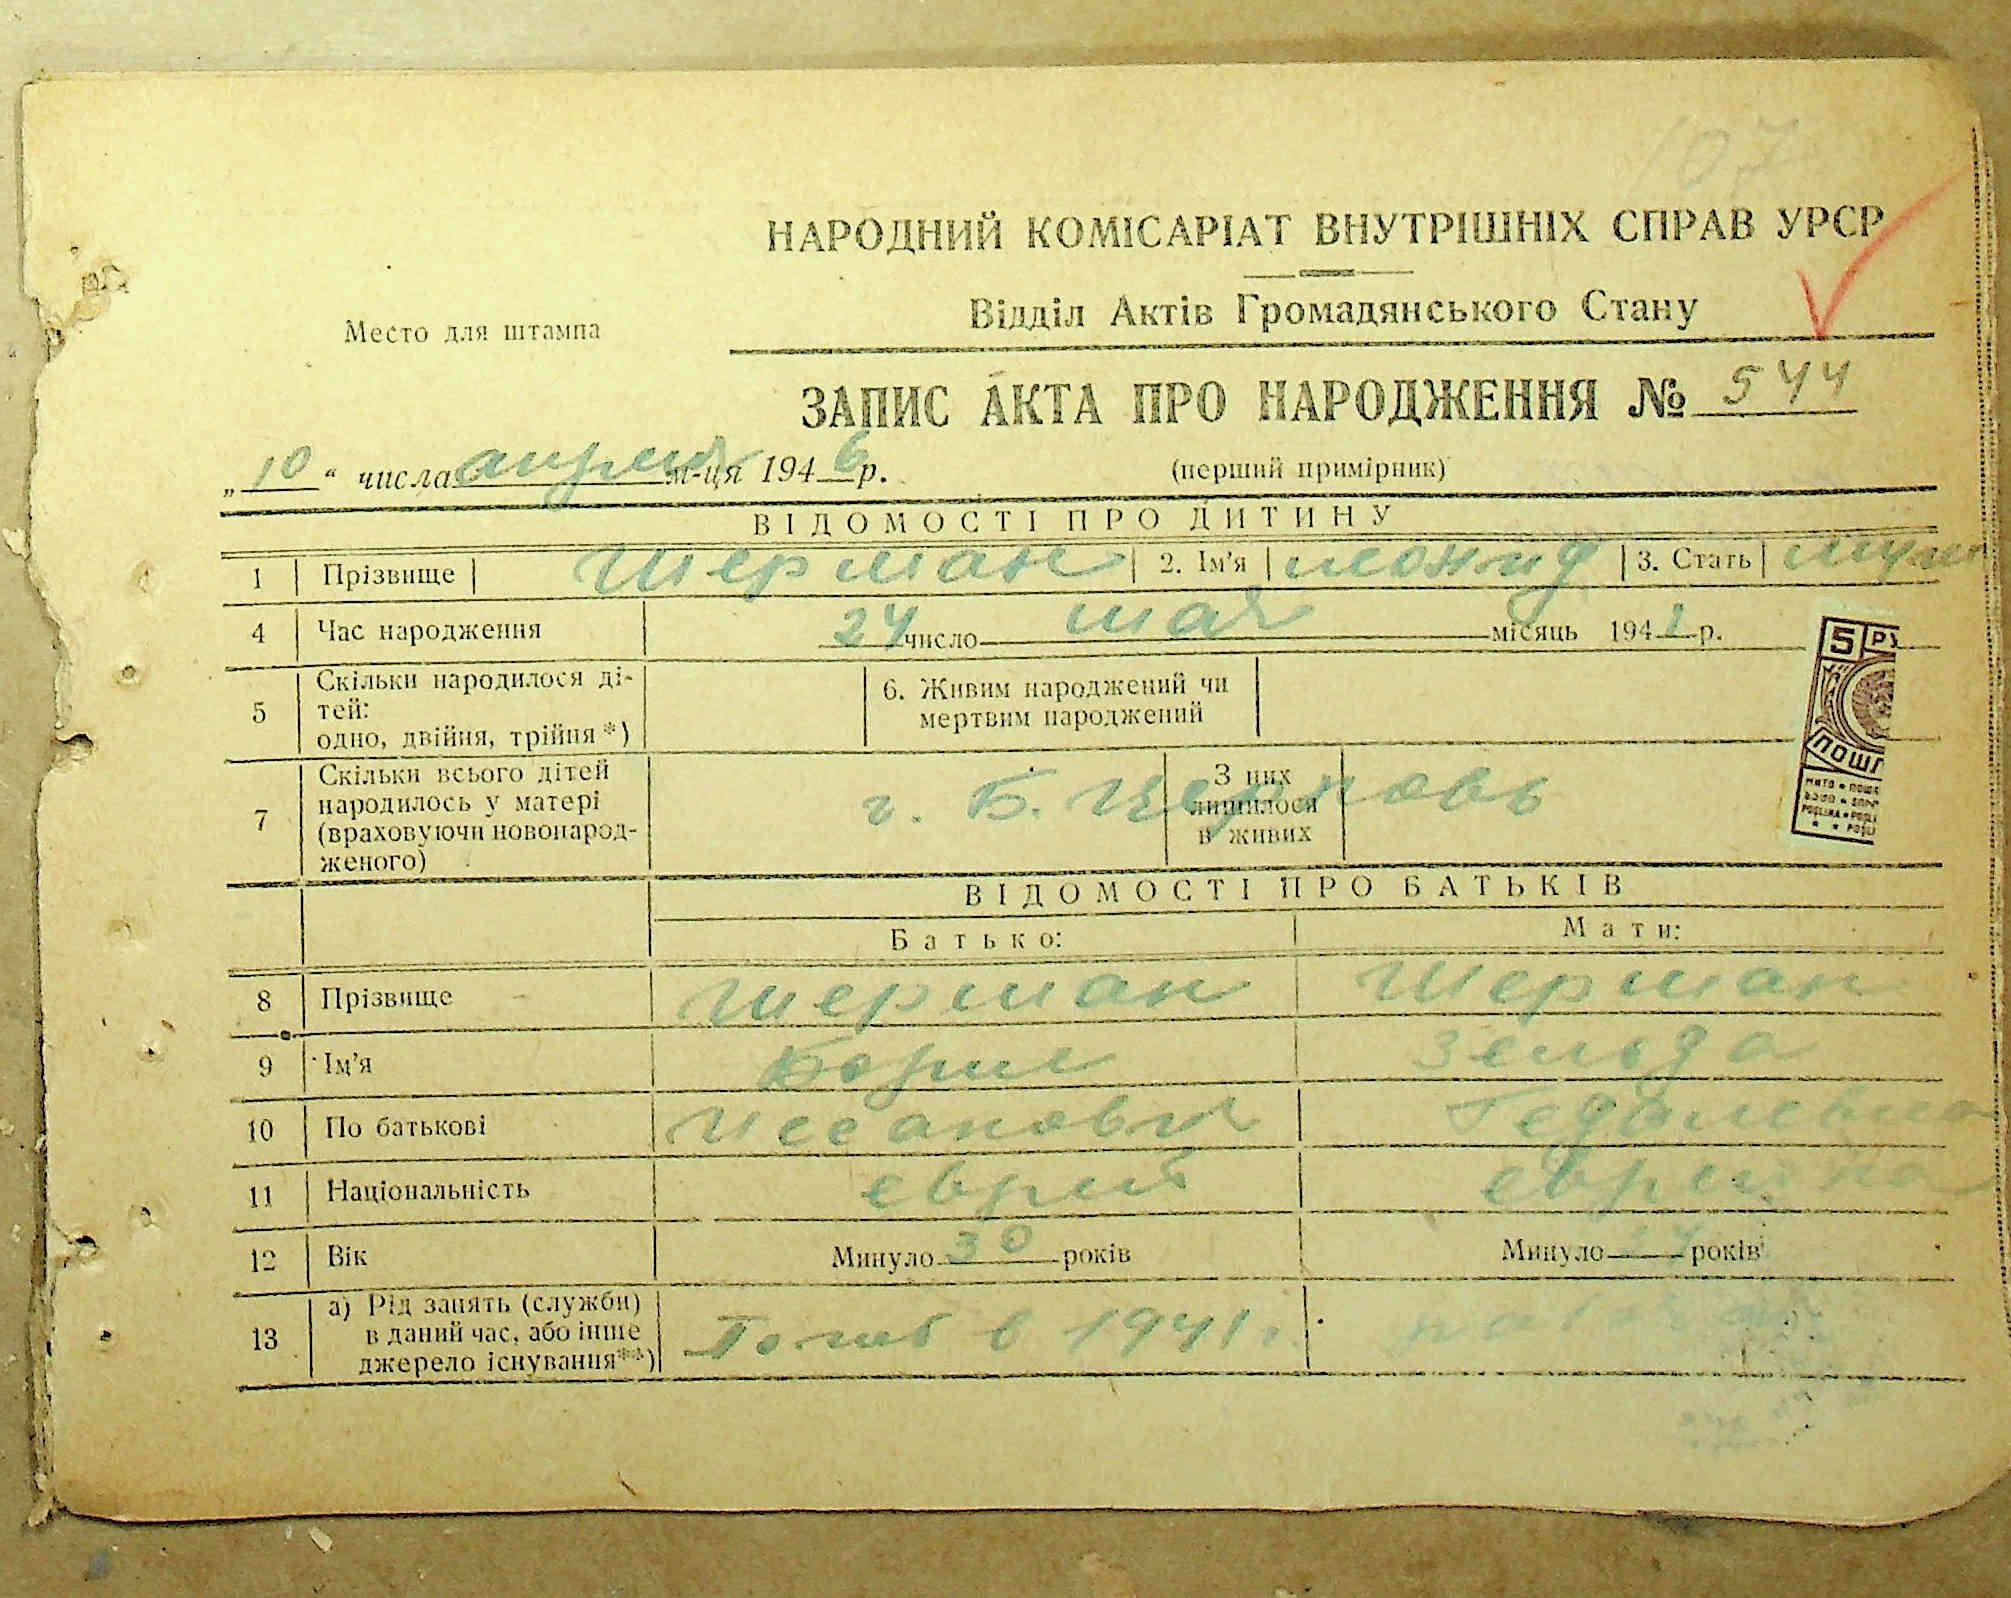 107
НАРОДНИЙ КОМІСАРІАТ ВНУТРІШНІХ СПРАВ УРСР
Место для штампа
Відділ Актів Громадянського Стану
ЗАПИС АКТА ПРО НАРОДЖЕННЯ № 544
„10“ числа апреля м-ця 1946 р. (перший примірник)
ВІДОМОСТІ ПРО ДИТИНУ
1 Прізвище Шерман 2. Ім'я Леонид 3. Стать муж
4 Час народження 24 число мая місяць 1941 р.
5 Скільки народилося ді-
тей:
одно, двійня, трійня*)
6. Живим народжений чи
мертвим народжений
5 РУ
ПОШТ
7 Скільки всього дітей
народилось у матері
(враховуючи новонарод-
женого)
г. Б. Церковь
З них
лишилося
в живих
ВІДОМОСТІ ПРО БАТЬКІВ
Батько: Мати:
8 Прізвище Шерман Шерман
9 Ім'я Борис Зельда
10 По батькові Иссакович Гедалевна
11 Національність еврей еврейка
12 Вік Минуло 30 років Минуло років
13 а) Рід занять (служби)
в даний час, або інше
джерело існування**)
Погиб в 1941 г.